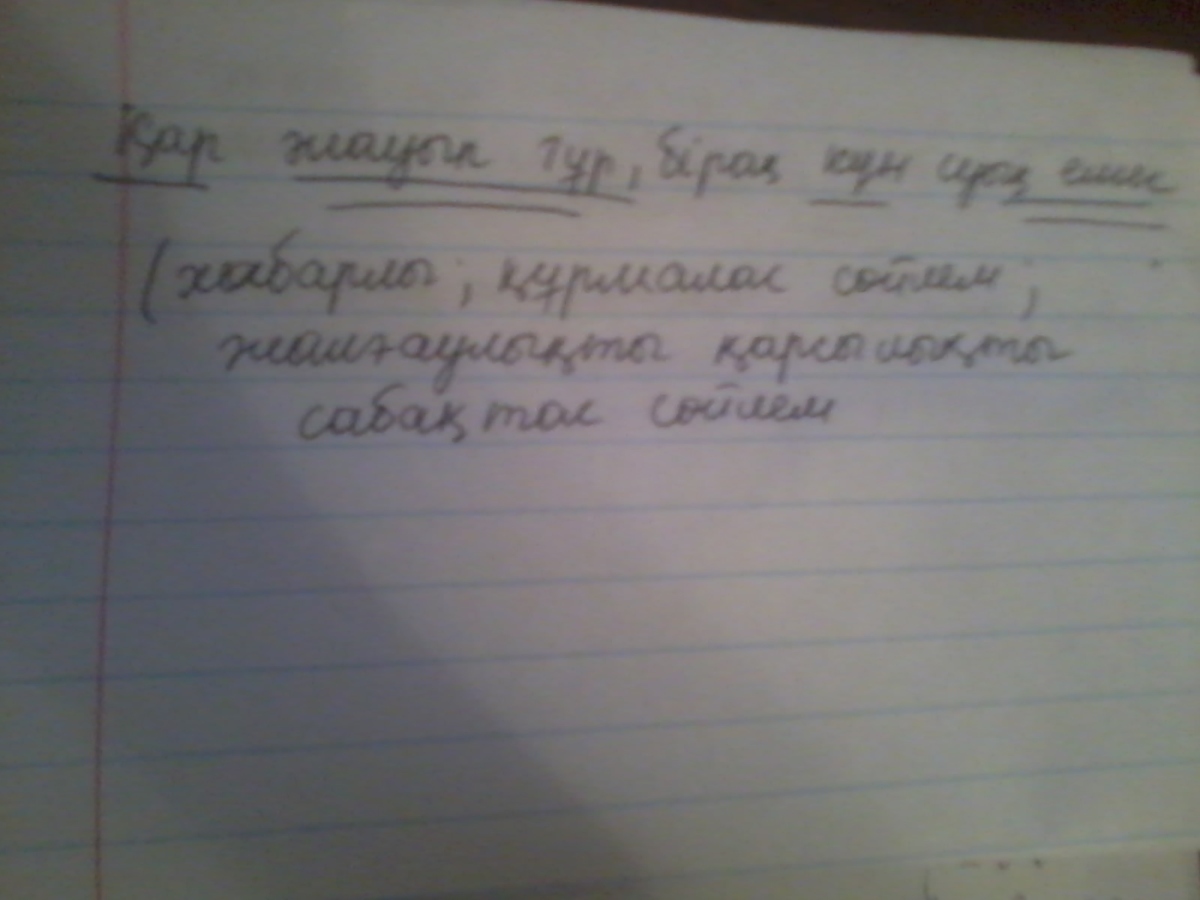 Қар жауып тұр, бірақ күн суық емес
(хабарлы; құрмалас сөйлем;
жалғаулықты қарсылықты
сабақтас сөйлем